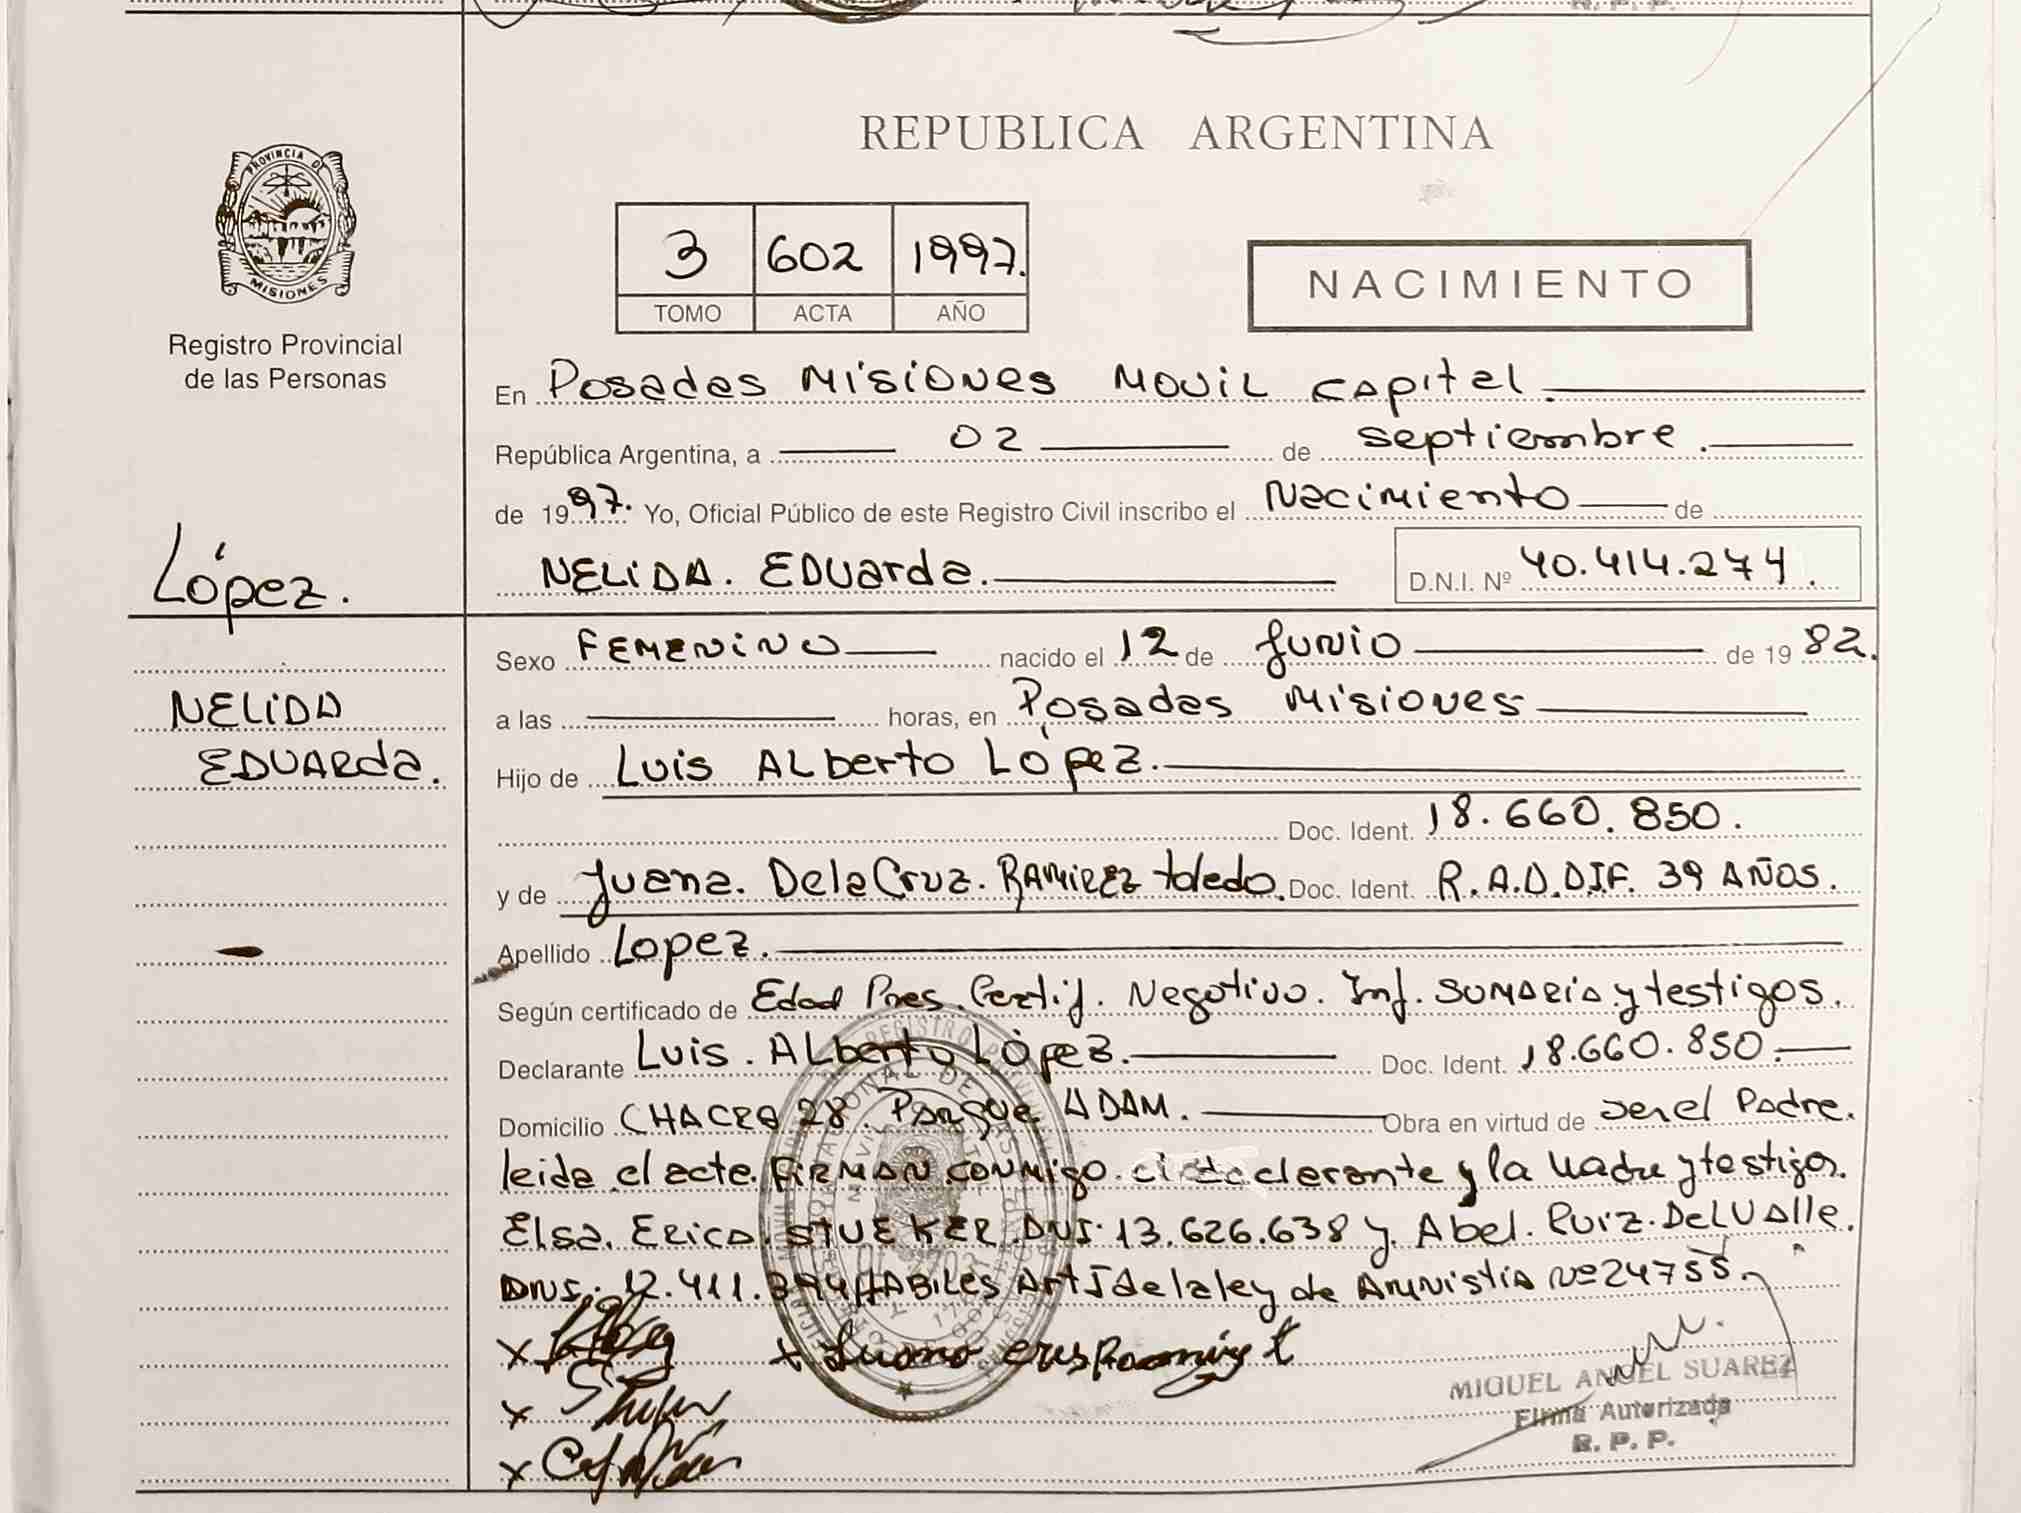 R. P. P.
REPUBLICA ARGENTINA
PROVINCIA DE
MISIONES
Registro Provincial
de las Personas
3 602 1997.
TOMO ACTA AÑO
NACIMIENTO
En Posadas Misiones Movil Capital.
República Argentina, a 02 de septiembre.
de 1997. Yo, Oficial Público de este Registro Civil inscribo el Nacimiento de
López.
NELIDA. EDUarda. D.N.I. Nº 40.414.274.
Sexo FEMENINO nacido el 12 de Junio de 1982.
NELIDA
EDUARda.
a las horas, en Posadas Misiones
Hijo de Luis ALberto López.
Doc. Ident. 18.660.850.
y de Juana. DelaCruz. RAMIREZ toledo. Doc. Ident. R.A.D.DIF. 39 AÑOS.
Apellido Lopez.
Según certificado de Edad Pres. Certif. Negativo. Inf. SUMARIA y testigos.
Declarante Luis. ALberto López. Doc. Ident. 18.660.850.
Domicilio CHACRA 28. Parque ADAM. Obra en virtud de ser el Padre.
leida el acta. FIRMAN CONMIGO. el declarante y la Madre y testigos.
Elsa. Erica. STUEKER. DNI. 13.626.638 y. Abel. Ruiz. DelValle.
DNI. 12.411.394 HABILES Art 5 de la ley de Amnistia Nº 24755.
MIGUEL ANGEL SUAREZ
Firma Autorizada
R. P. P.